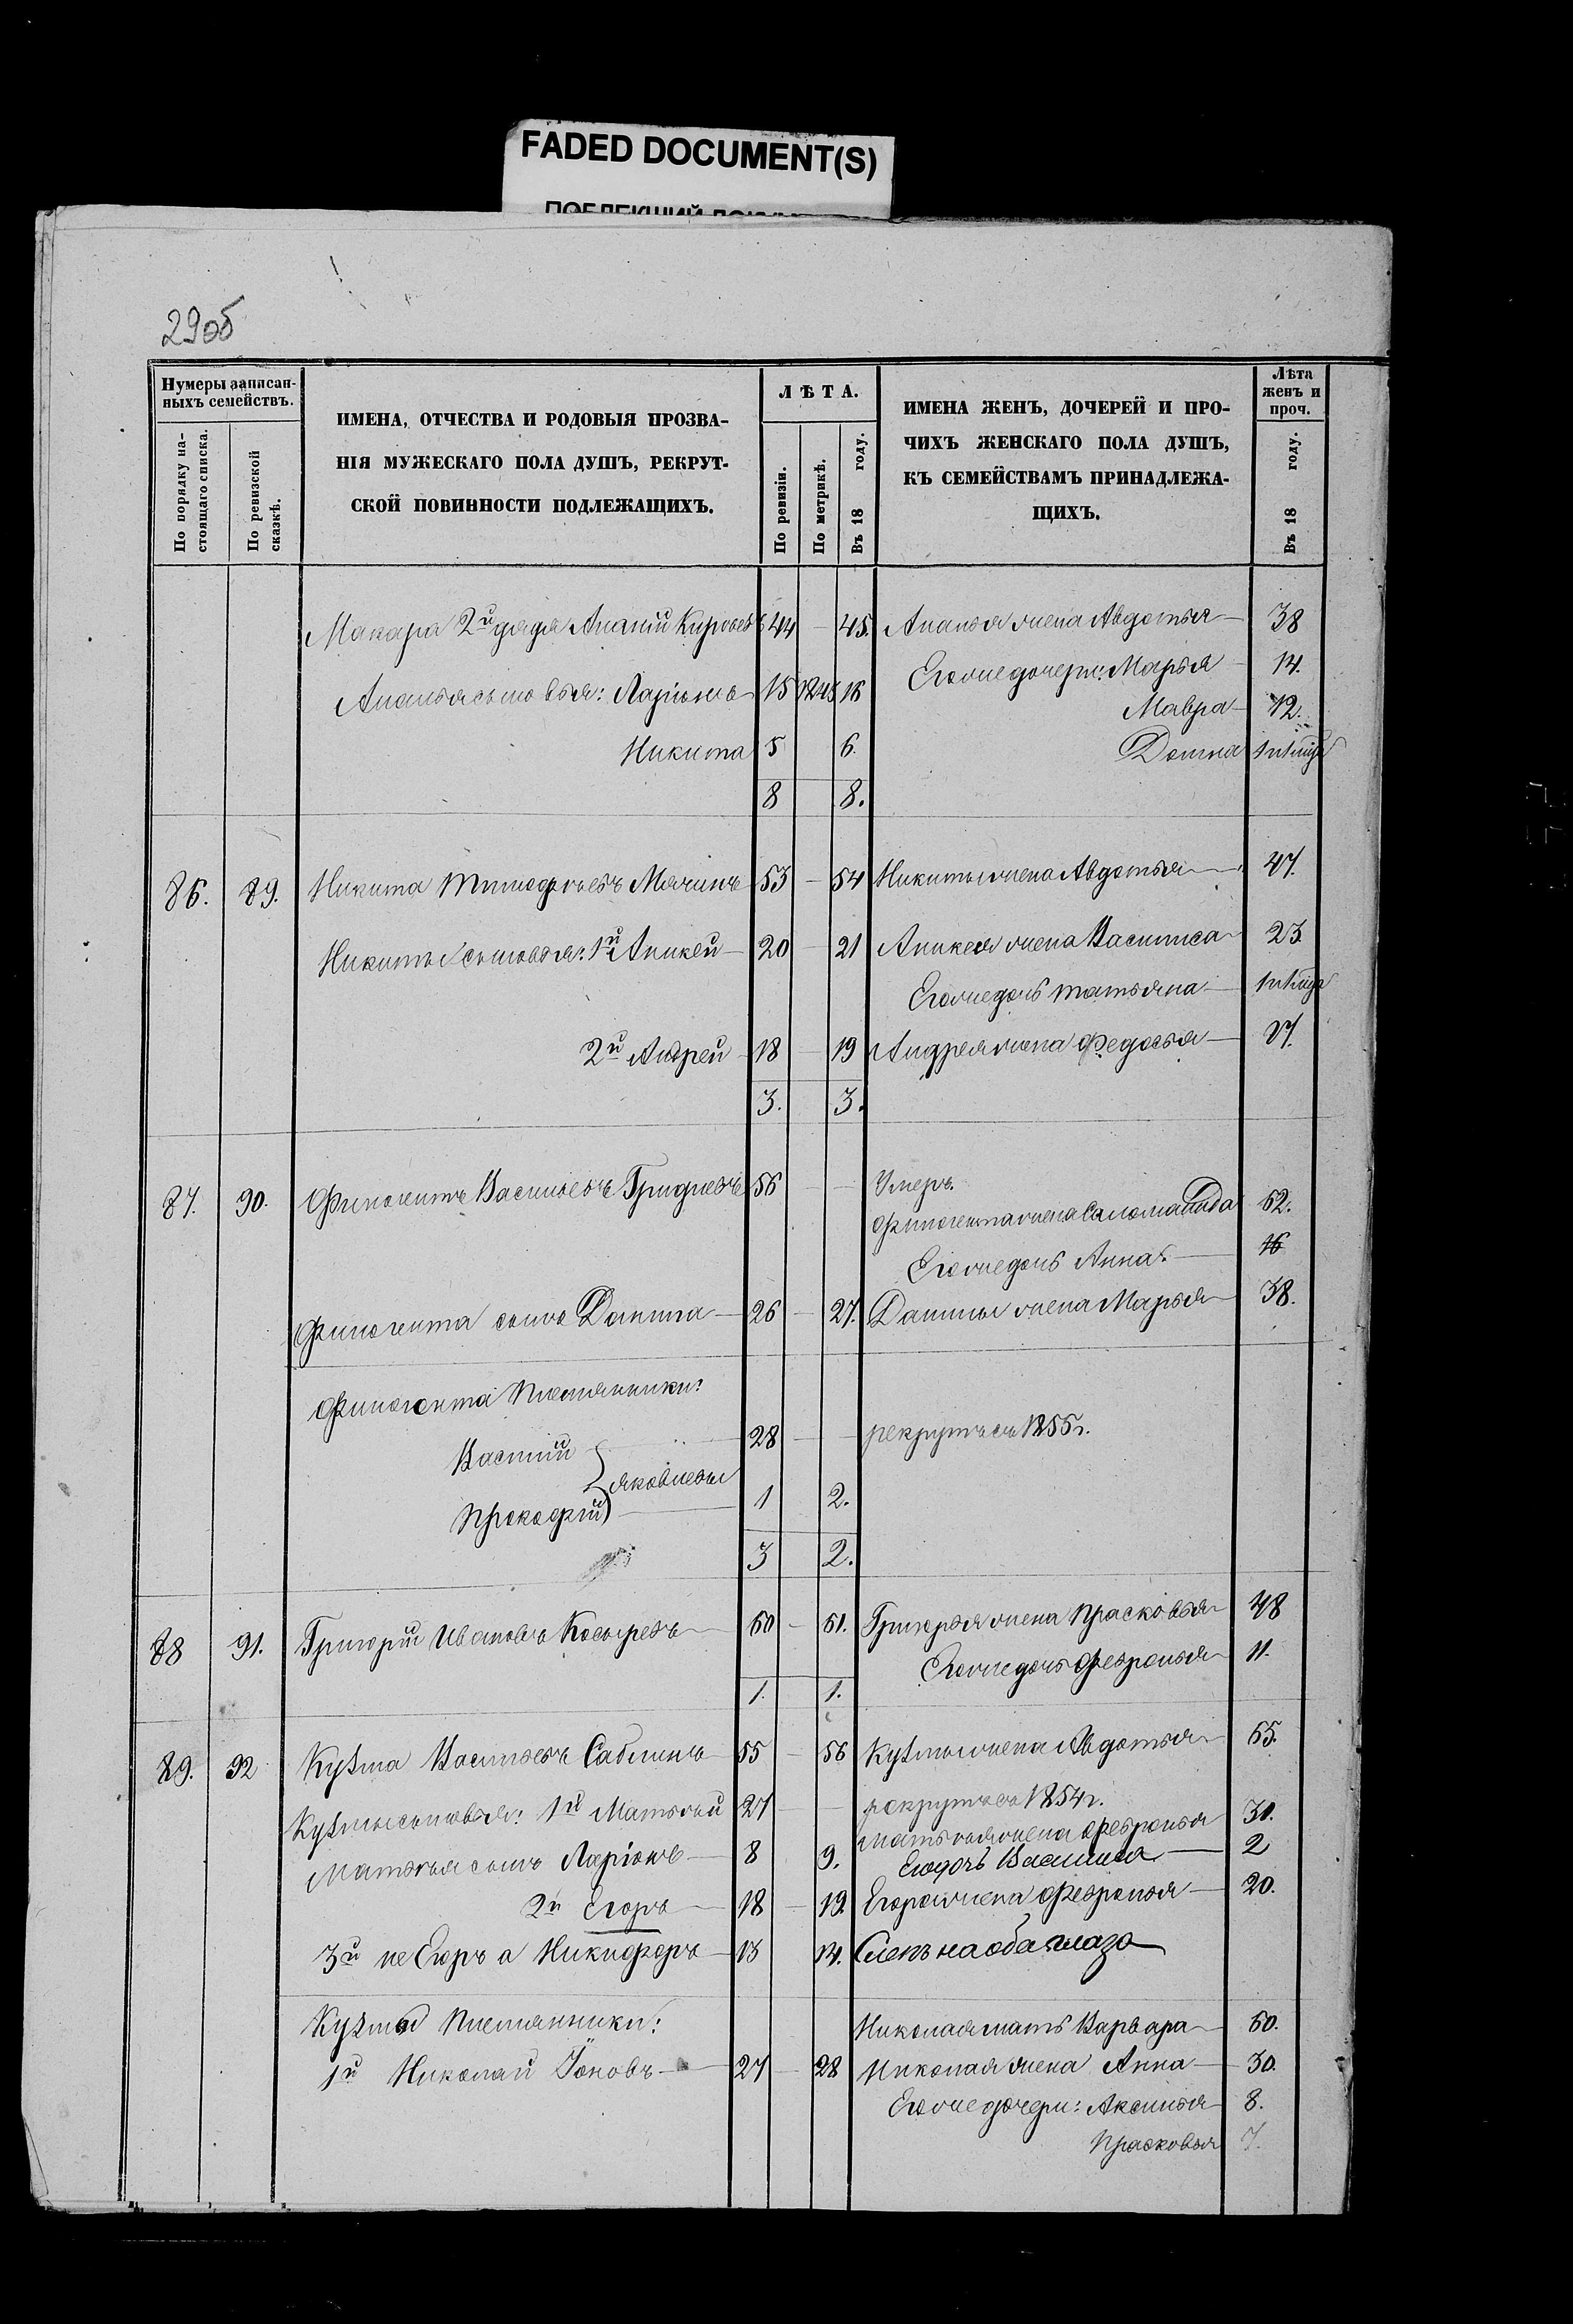 FADED DOCUMENT(S)
29об
Нумеры записан-
ныхъ семействъ.
По порядку на-
стоящаго списка.
По ревизской
сказкѣ.
ИМЕНА, ОТЧЕСТВА И РОДОВЫЯ ПРОЗВА-
НІЯ МУЖЕСКАГО ПОЛА ДУШЪ, РЕКРУТ-
СКОЙ ПОВИННОСТИ ПОДЛЕЖАЩИХЪ.
ЛѢТА.
По ревизіи.
По метрикѣ.
Въ 18 году.
ИМЕНА ЖЕНЪ, ДОЧЕРЕЙ И ПРО-
ЧИХЪ ЖЕНСКАГО ПОЛА ДУШЪ,
КЪ СЕМЕЙСТВАМЪ ПРИНАДЛЕЖА-
ЩИХЪ.
Лѣта
женъ и
проч.
Въ 18 году.
Макара 2й дядя Ананій 44 — 45. Ананья жена Авдотья — 38
Ананья сыновья: Ларіонъ 15 16 Его же дочери: Марья — 14.
Мавра — 12.
Никита 5 6. Домна
8 8.
86. 89. Никита Тимофѣевъ Мячинъ 53 — 54 Никиты жена Авдотья — 47.
Никиты сыновья: 1й Аникей — 20 — 21 Аникея жена Василиса 23.
Его же дочь Татьяна —
2й Андрей — 18 — 19 Андрея жена Федосья —
3. 3.
87. 90. Финогентъ Васильевъ Гридневъ 56 — — Умеръ.
Финогента жена Саломанида 62.
Его же дочь Анна. — 16
Финогента сынъ Данила — 26 — 27. Данилы жена Марья 38.
Финогента племянники:
Василій — 28 — — рекрутъ съ 1855 г.
Яковлевы
Прокофій — 1 2.
3 2.
88 91. Григорій Ивановъ Косыревъ — 60 — 61. Григорья жена Прасковья 48
Его же дочь Февронья 11.
1. 1.
89. 92 Кузьма Васильевъ Саблинъ 55 — 56 Кузьмы жена Авдотья 55.
Кузьмы сыновья: 1й Матвѣй 27 — — рекрутъ съ 1854 г.
Матвѣя жена Февронья 30.
Матвѣя сынъ Ларіонъ — 8 9. Его дочь Василиса — 2
2й Егоръ — 18 — 19. Егора жена Февронья — 20.
3й не Егоръ а Никифоръ — 13 14. Слепъ на оба глаза
Кузьмы племянники: Николая мать Варвара — 60.
1й Николай Іоновъ — 27 — 28 Николая жена Анна — 30.
Его же дочери: Аксинья — 8.
Прасковья 7.